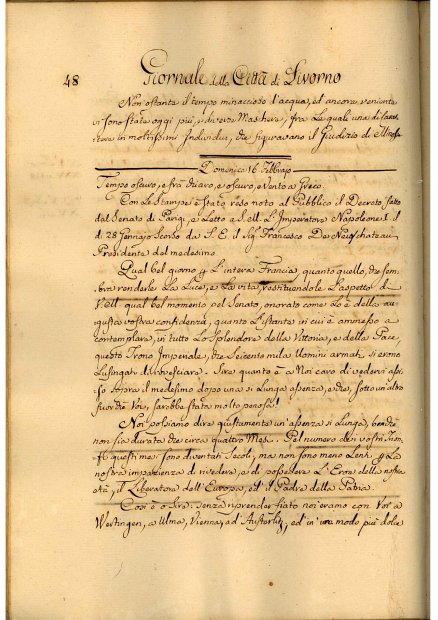 48
Giornale della Città di Livorno
Non ostante il tempo minaccioso d'acqua, ed ancora veniente
vi sono state oggi più, e diverse Maschere, fra le quali una di
in moltissimi Individui, che figuravano il Giudizio di
Domenica 16 Febbrajo
Tempo oscuro, e frà chiaro, e oscuro, e Vento a Greco
Con le Stampe è stato reso noto al Pubblico il Decreto, fatto
dal Senato di Parigi, e Letto a S. ell. L'Imperatore Napoleone I. il
dì 28 Gennajo Scorso da S. E. il Sig. Francesco De Neufchateau
Presidente del medesimo
Qual bel giorno p. L'intera Francia quanto quello, che sem-
bra renderle La Luce, e La vita, restituendole L'aspetto di
Vell. qual bel momento pel Senato, onorato come Lo è della au-
gusta vostra confidenza, quanto L'istante in cui è ammesso a
contemplare, in tutto Lo Splendore della Vittoria, e della Pace,
questo Trono Imperiale, che Seicento mila Uomini armati si erano
Lusingati di rovesciare. Sire quanto è a Noi caro di vedervi assi-
so sopra il medesimo dopo una sì Lunga assenza, e che, sotto un altro
fuor che Voi, sarebbe stata molto penosa!
Noi possiamo dire giustamente un'assenza sì Lunga, benchè
non sia durata che circa quattro Mesi. Pel numero dei vostri
questi mesi sono diventati Secoli, ma non sono meno Lenti p. La
nostra impazienza di rivedere, e di possedere L'Eroe della nostra
età, il Liberatore dell'Europa, ed il Padre della Patria.
Così è o Sire: senza riprender fiato noi eramo con Voi a
Wertingen, a Ulma, Vienna, ad Austerliz, ed in un modo più dolce